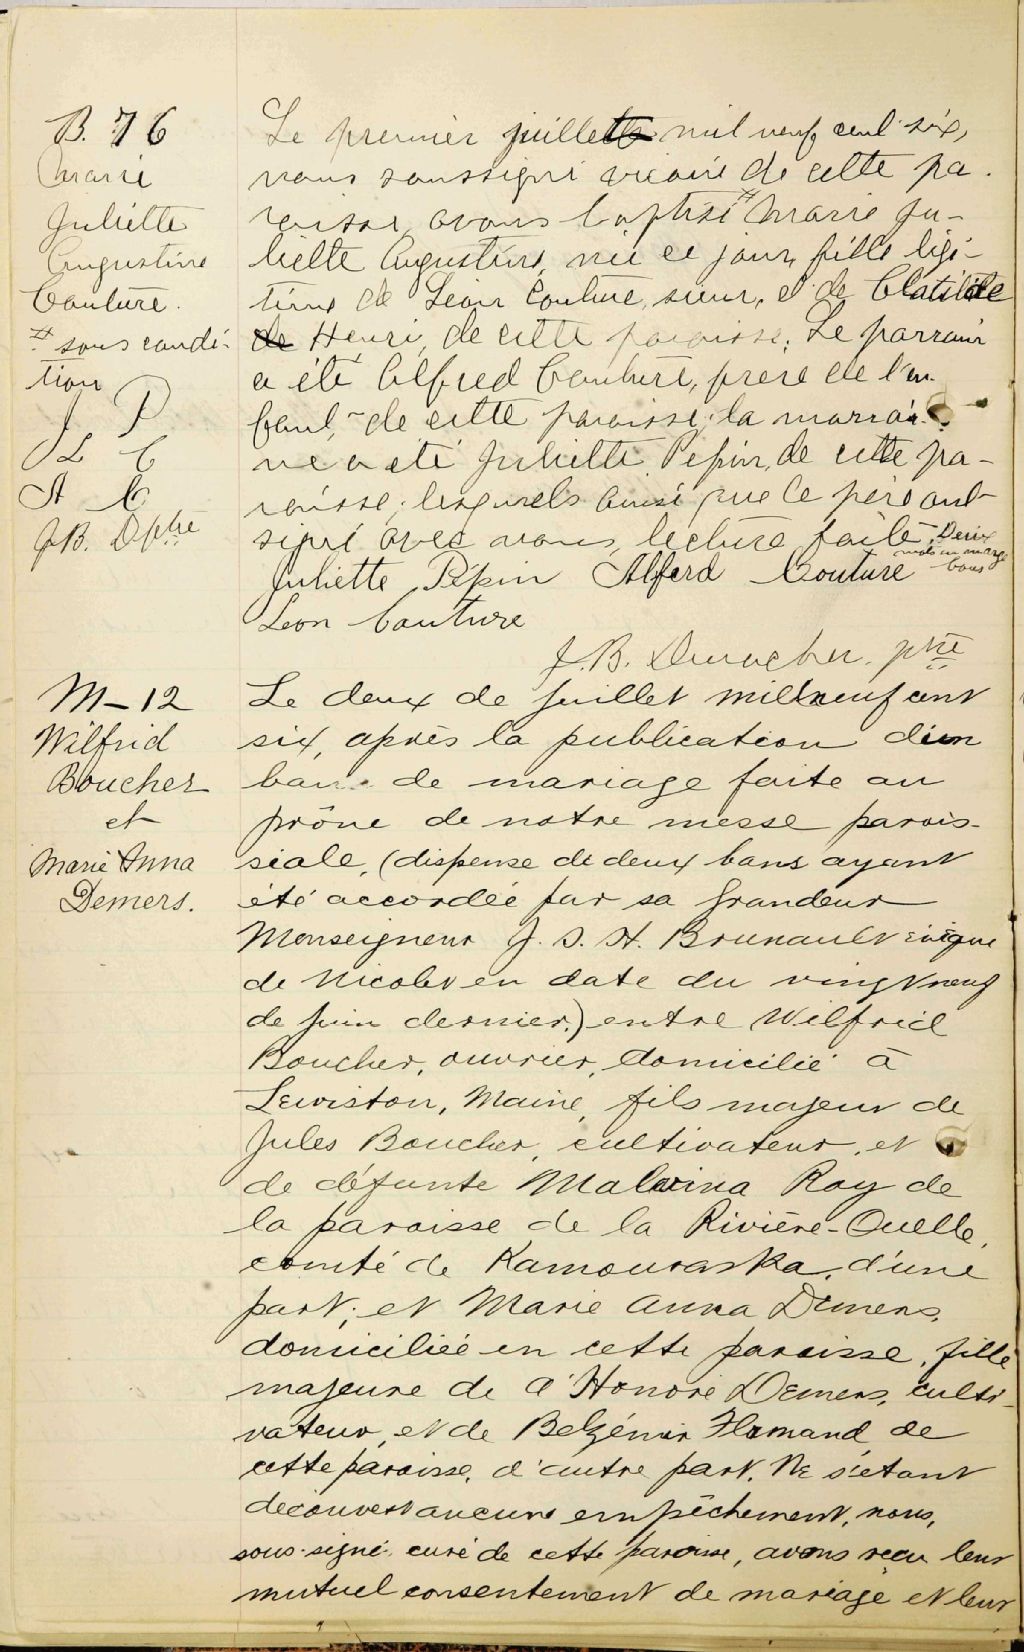 B. 76
Marie
Juliette
Augustine
Couture.
# sous condi-
tion
J. P
L C
A C
J.B. D ptre
Le premier juillet mil neuf cent six,
nous soussigné vicaire de cette pa-
roisse, avons baptisé # Marie Ju-
liette Augustine, née ce jour, fille légi-
time de Léon Couture, sieur, et de Clotilde
de Henri, de cette paroisse. Le parrain
a été Alfred Couture, frère de l'en-
fant, de cette paroisse; la marrai-
ne a été Juliette Pepin, de cette pa-
roisse; lesquels ainsi que le père ont
signé avec nous, lecture faite. Deux
mots en marge
bons
Juliette Pepin Alferd Couture
Leon Couture
J. B. Durocher. ptre
M-12
Wilfrid
Boucher
et
Marie Anna
Demers.
Le deux de Juillet mil neuf cent
six, après la publication d'un
ban de mariage faite au
prône de notre messe parois-
siale, (dispense de deux bans ayant
été accordée par sa Grandeur
Monseigneur J. S. H. Brunault évêque
de Nicolet en date du vingt neuf
de Juin dernier,) entre Wilfrid
Boucher, ouvrier, domicilié à
Lewiston, Maine, fils majeur de
Jules Boucher, cultivateur, et
de défunte Malvina Roy de
la paroisse de la Rivière-Ouelle,
comté de Kamouraska, d'une
part; et Marie Anna Demers,
domiciliée en cette paroisse, fille
majeure de Honoré Demers, culti-
vateur, et de Belzémir Hamand de
cette paroisse, d'autre part. Ne s'étant
découvert aucune empêchement, nous,
sous-signé curé de cette paroisse, avons reçu leur
mutuel consentement de mariage et leur